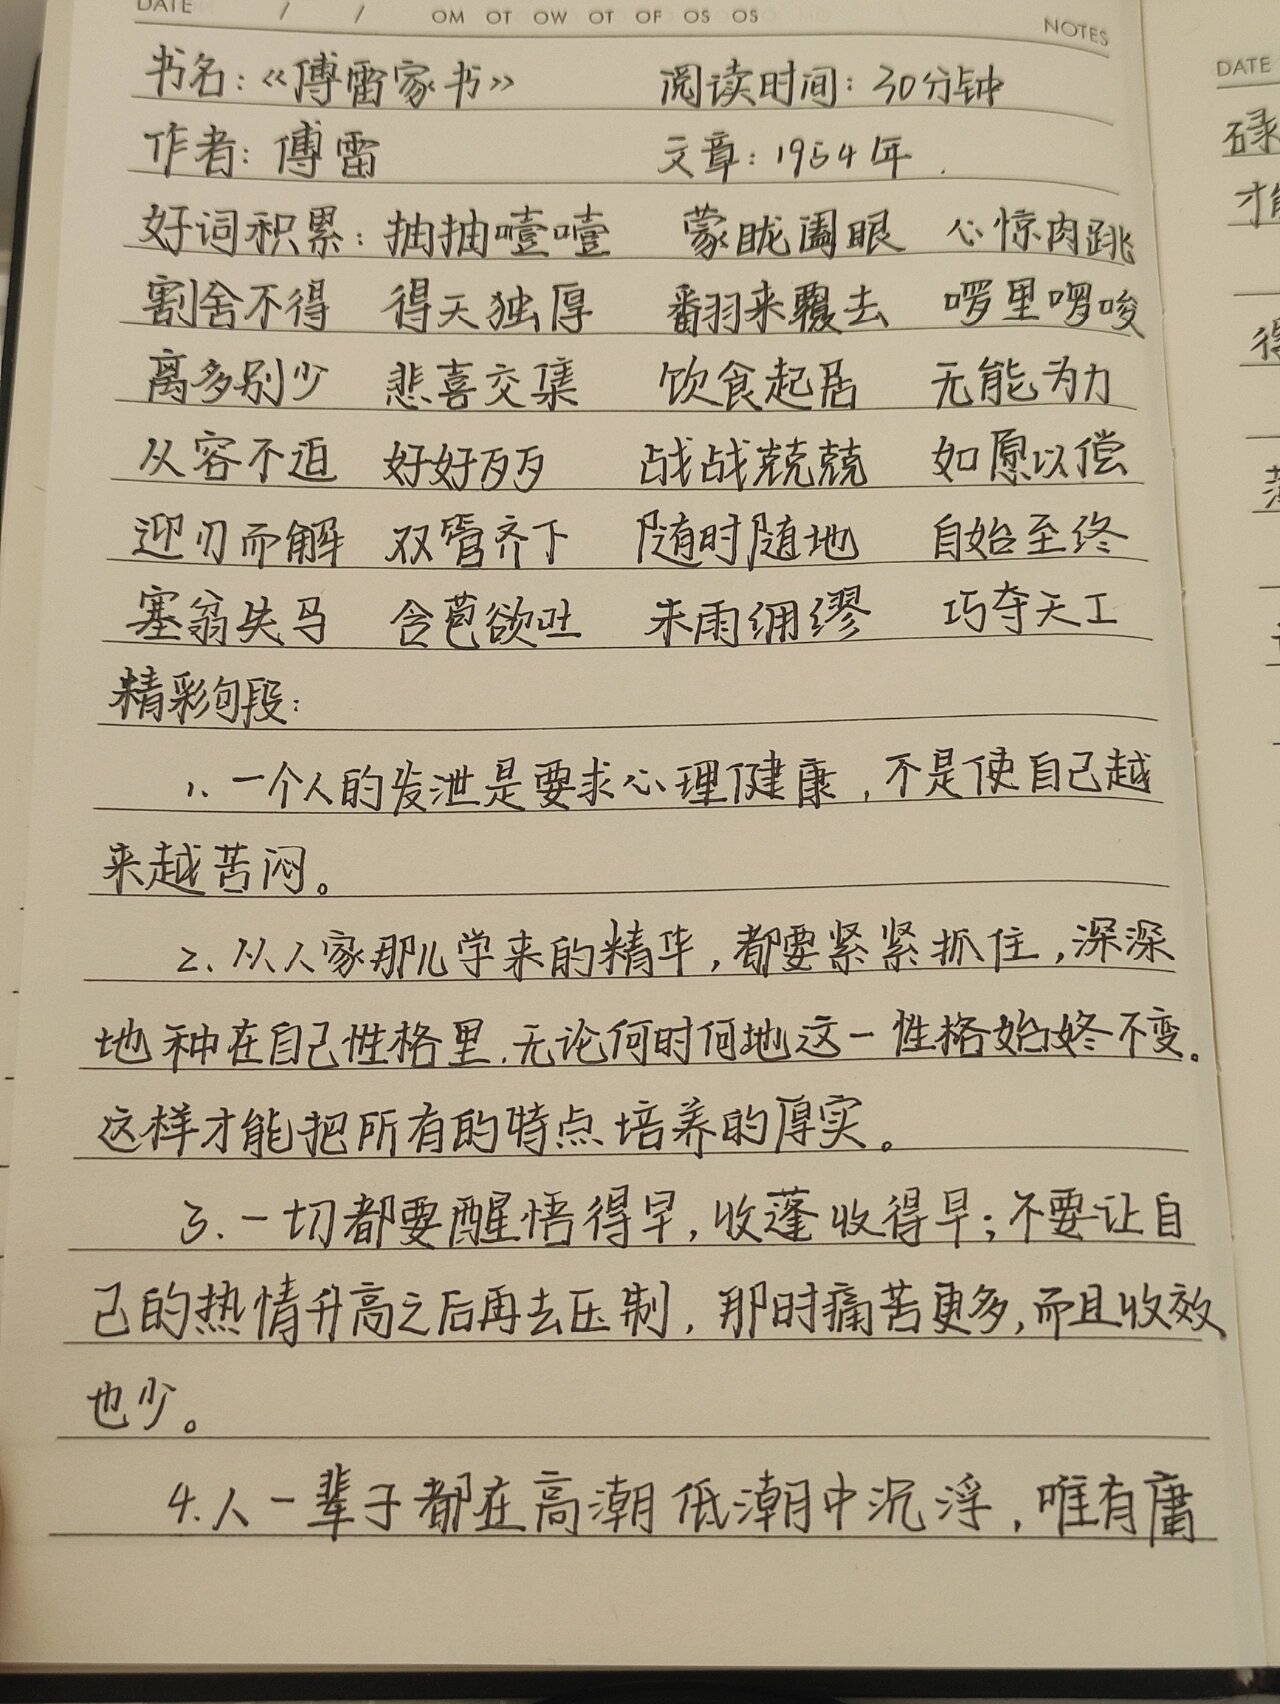 DATE / / OM OT OW OT OF OS OS NOTES
书名：《傅雷家书》 阅读时间：30分钟
作者：傅雷 文章：1954年.
好词积累：抽抽噎噎 蒙眬阖眼 心惊肉跳
割舍不得 得天独厚 翻来覆去 啰里啰唆
离多别少 悲喜交集 饮食起居 无能为力
从容不迫 好好歹歹 战战兢兢 如愿以偿
迎刃而解 双管齐下 随时随地 自始至终
塞翁失马 含苞欲吐 未雨绸缪 巧夺天工
精彩句段：
1. 一个人的发泄是要求心理健康，不是使自己越
来越苦闷。
2. 从人家那儿学来的精华，都要紧紧抓住，深深
地种在自己性格里，无论何时何地这一性格始终不变。
这样才能把所有的特点培养的厚实。
3. 一切都要醒悟得早，收篷收得早；不要让自
己的热情升高之后再去压制，那时痛苦更多，而且收效
也少。
4.人一辈子都在高潮低潮中沉浮，唯有庸
DATE
碌
才能
得